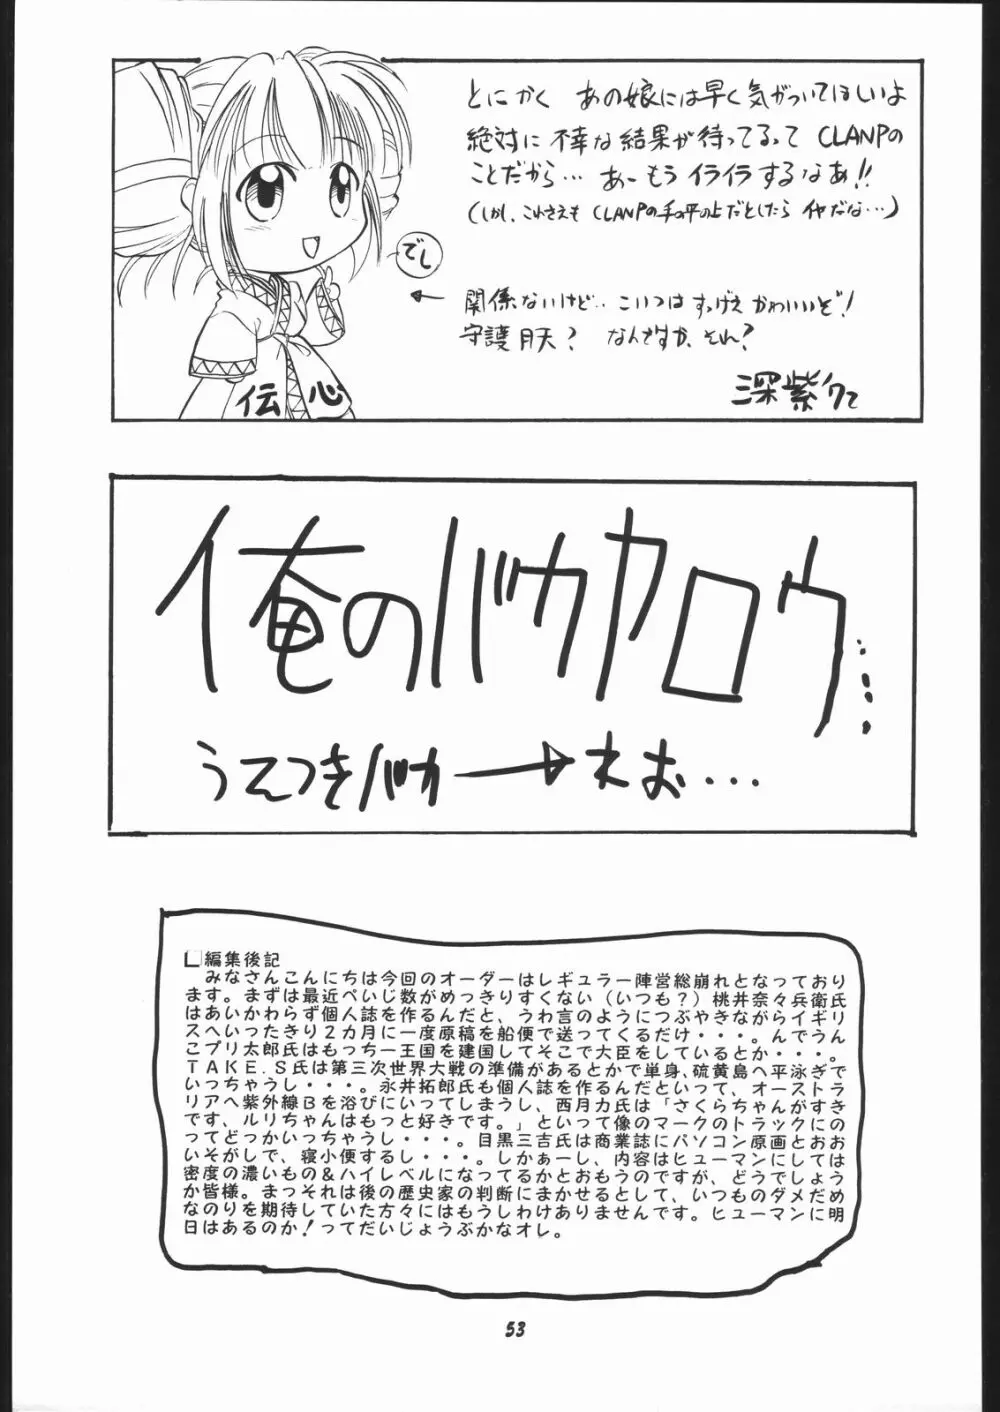 とにかく あの娘には早く気がついてほしいよ
絶対に不幸な結果が待ってるって CLANPの
ことだから… あーもうイライラするなあ!!
(しかし、これさえも CLANPの手の平の上だとしたら イヤだな…)
でし
← 関係ないけど… こいつは すっげえ かわいいぞ!
守護月天? なんですか、それ?
深紫
伝 心
俺のバカヤロウ…
うえつきバカ → ねお…
編集後記
みなさんこんにちは今回のオーダーはレギュラー陣営総崩れとなっており
ます。まずは最近ぺいじ数がめっきりすくない(いつも?)桃井奈々兵衛氏
はあいかわらず個人誌を作るんだと、うわ言のようにつぶやきながらイギリ
スへいったきり2カ月に一度原稿を船便で送ってくるだけ・・・。んでうん
こプリ太郎氏はもっちー王国を建国してそこで大臣をしているとか・・・。
TAKE.S氏は第三次世界大戦の準備があるとかで単身、硫黄島へ平泳ぎで
いっちゃうし・・・。永井拓郎氏も個人誌を作るんだといって、オーストラ
リアへ紫外線Bを浴びにいってしまうし、西月力氏は「さくらちゃんがすき
です、ルリちゃんはもっと好きです。」といって像のマークのトラックにの
ってどっかいっちゃうし・・・。目黒三吉氏は商業誌にパソコン原画とおお
いそがしで、寝小便するし・・・。しかぁーし、内容はヒューマンにしては
密度の濃いもの&ハイレベルになってるかとおもうのですが、どうでしょう
か皆様。まっそれは後の歴史家の判断にまかせるとして、いつものダメだめ
なのりを期待していた方々にはもうしわけありませんです。ヒューマンに明
日はあるのか!ってだいじょうぶかなオレ。
53